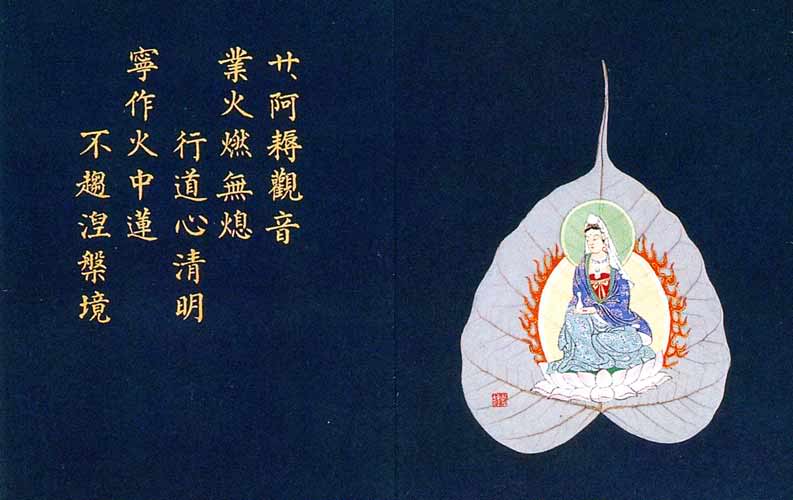 廿、阿耨觀音
業火燃無熄
行道心清明
寧作火中蓮
不趨涅槃境